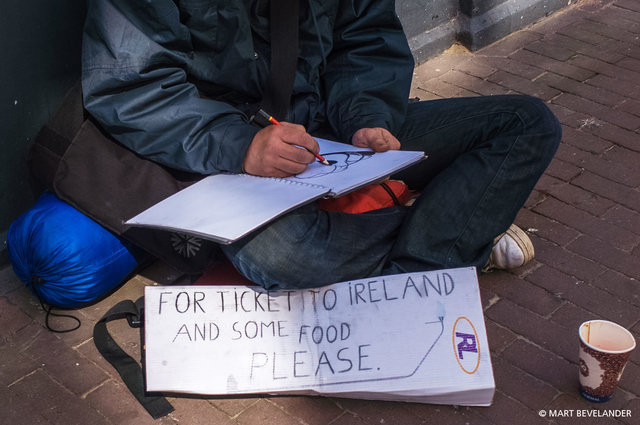 FOR TICKET TO IRELAND
AND SOME FOOD
PLEASE.
RL
© MART BEVELANDER